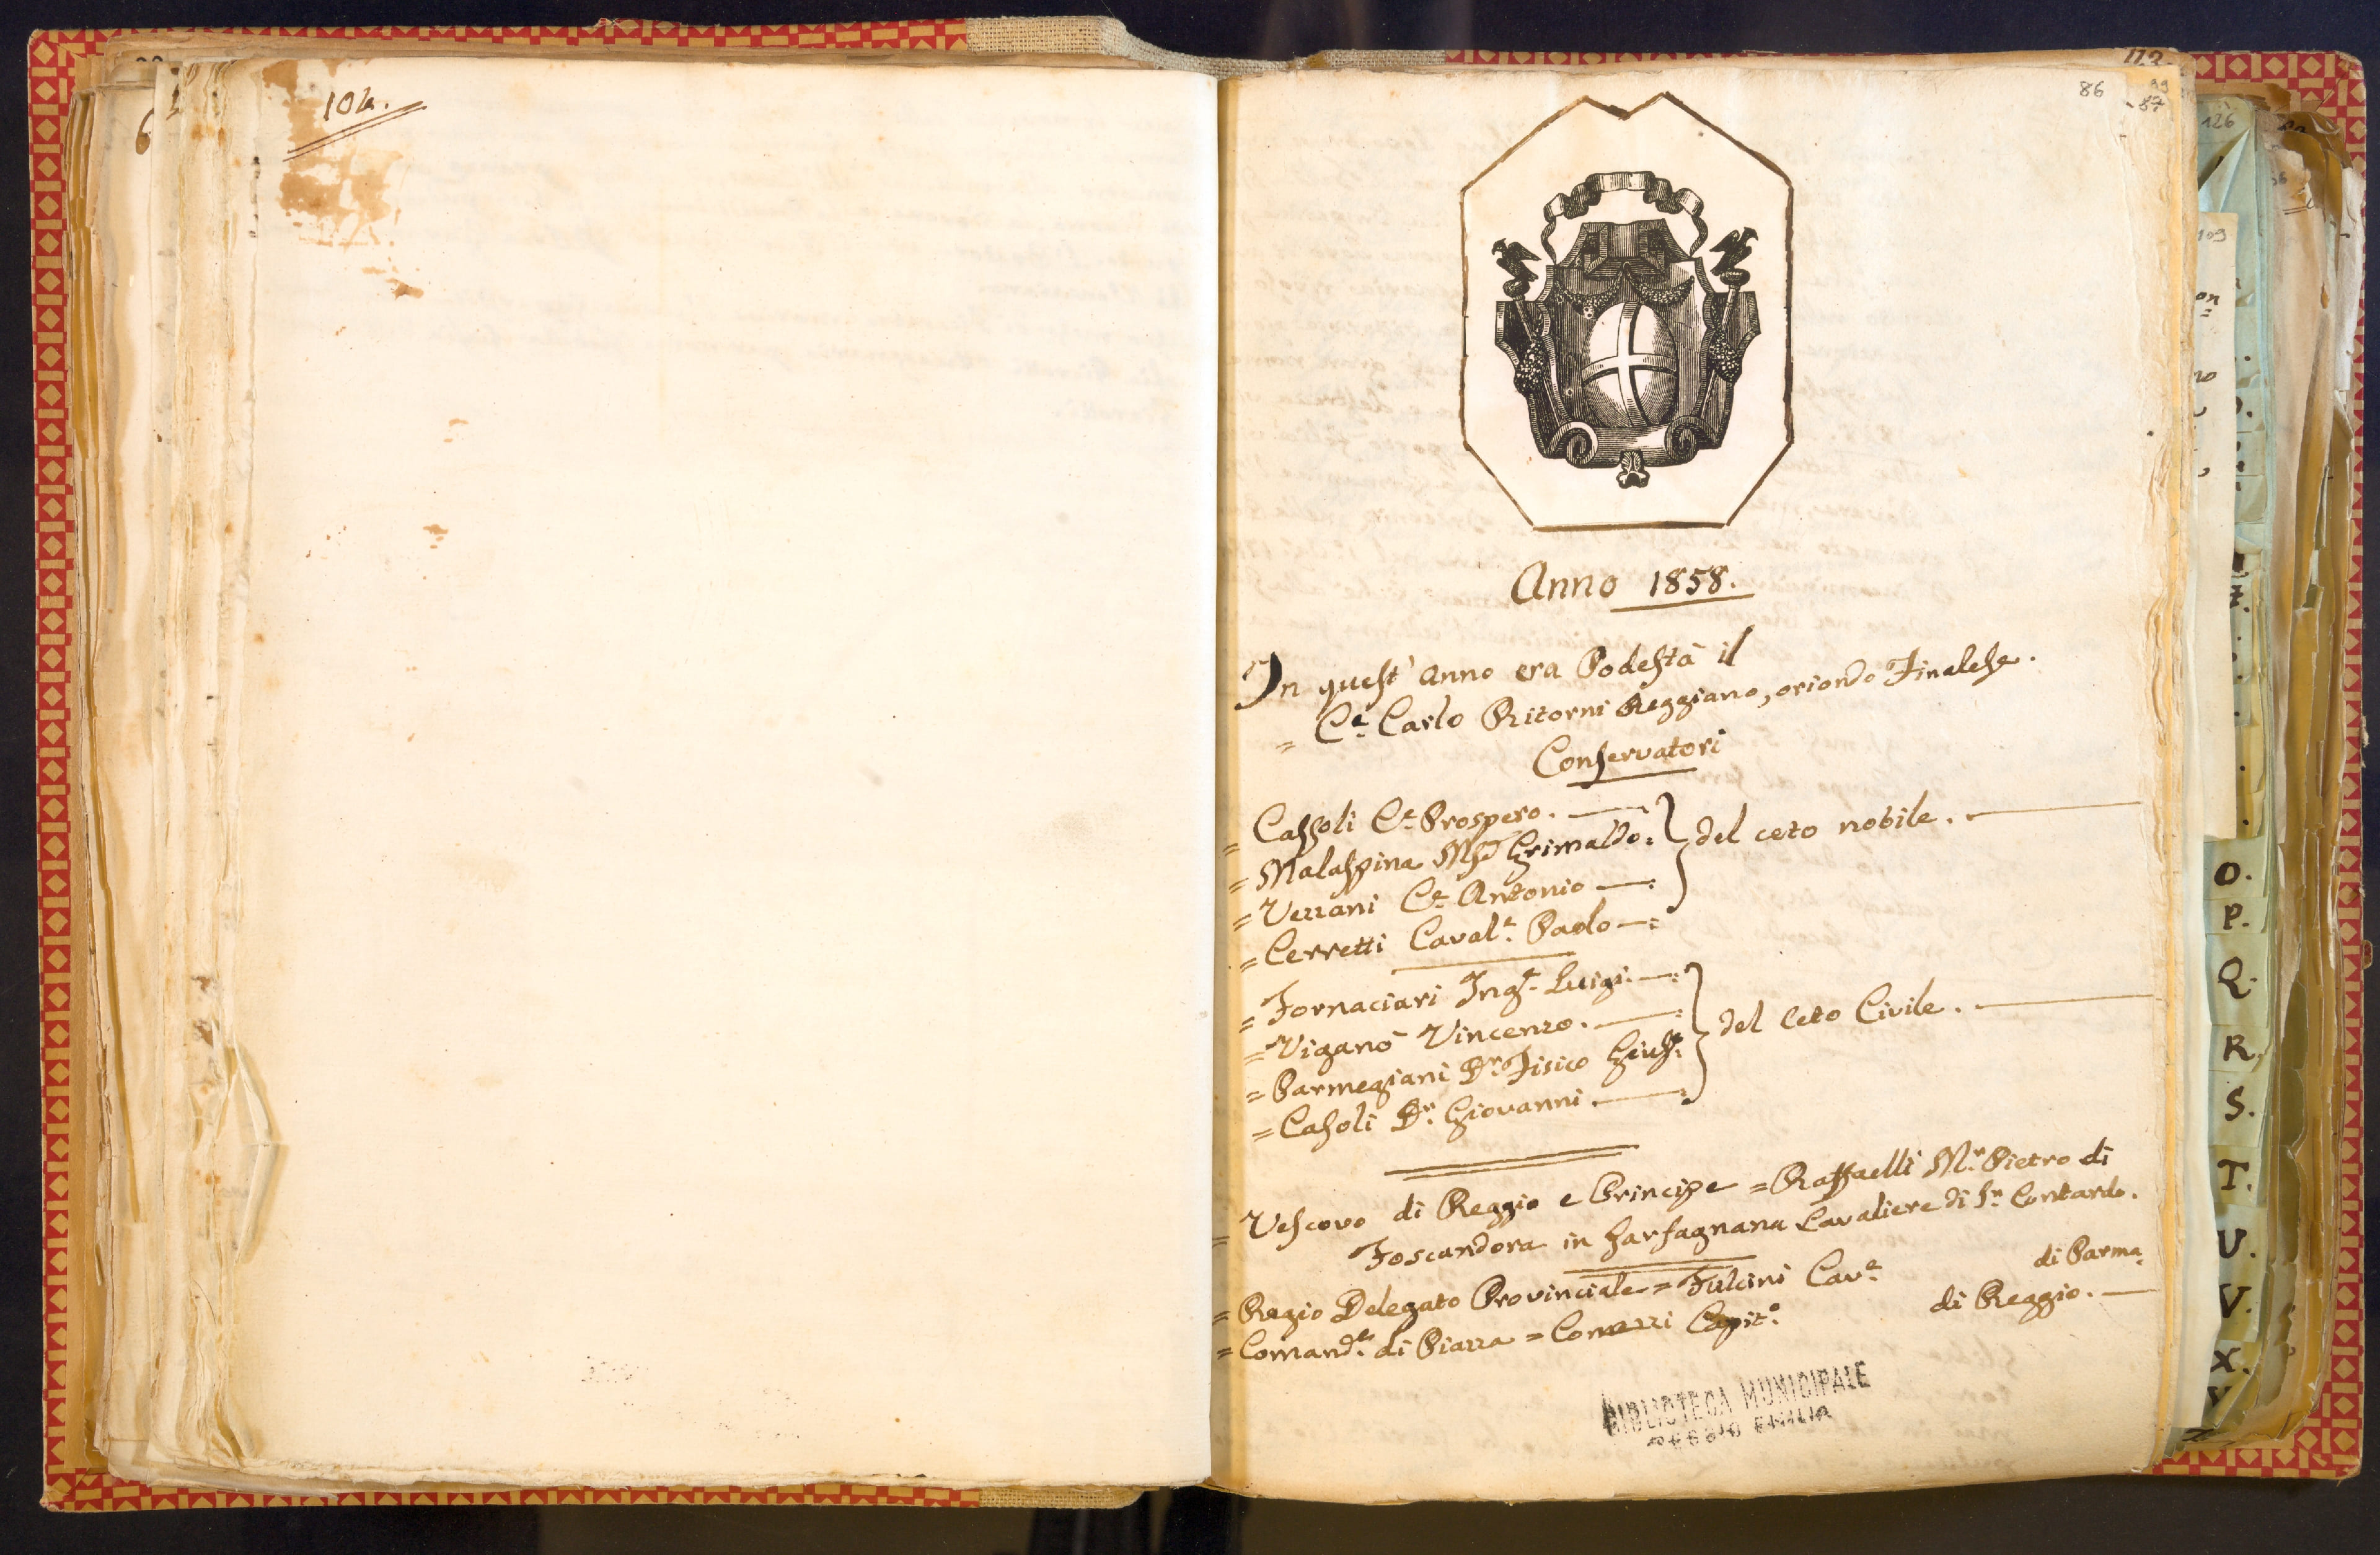 104.
86
87
Anno 1858.
In quest' anno era Podestà il
= C.e Carlo Ritorni Reggiano, oriondo Finalese.
Conservatori
= Cassoli C.e Prospero. — del ceto nobile. —
= Malaspina M.se Grimaldo.
= Vezzani C.e Antonio —:
= Cerretti Caval.e Paolo —:
= Fornaciari Ing.e Luigi. —:
= Viganò Vincenzo. —: del Ceto Civile. —
= Parmegiani D.r Fisico Gius.e:
= Casoli D.r Giovanni. —:
= Vescovo di Reggio e Principe = Raffaelli M.r Pietro di
Foscandora in Garfagnana Cavaliere di S.n Contardo.
= Regio Delegato Provinciale = Fulcini Cav.e di Parma
= Comand.e di Piazza = Capit.o di Reggio. —
BIBLIOTECA MUNICIPALE
REGGIO EMILIA
126
109
on
O.
P.
Q.
R.
S.
T.
U.
V.
X.